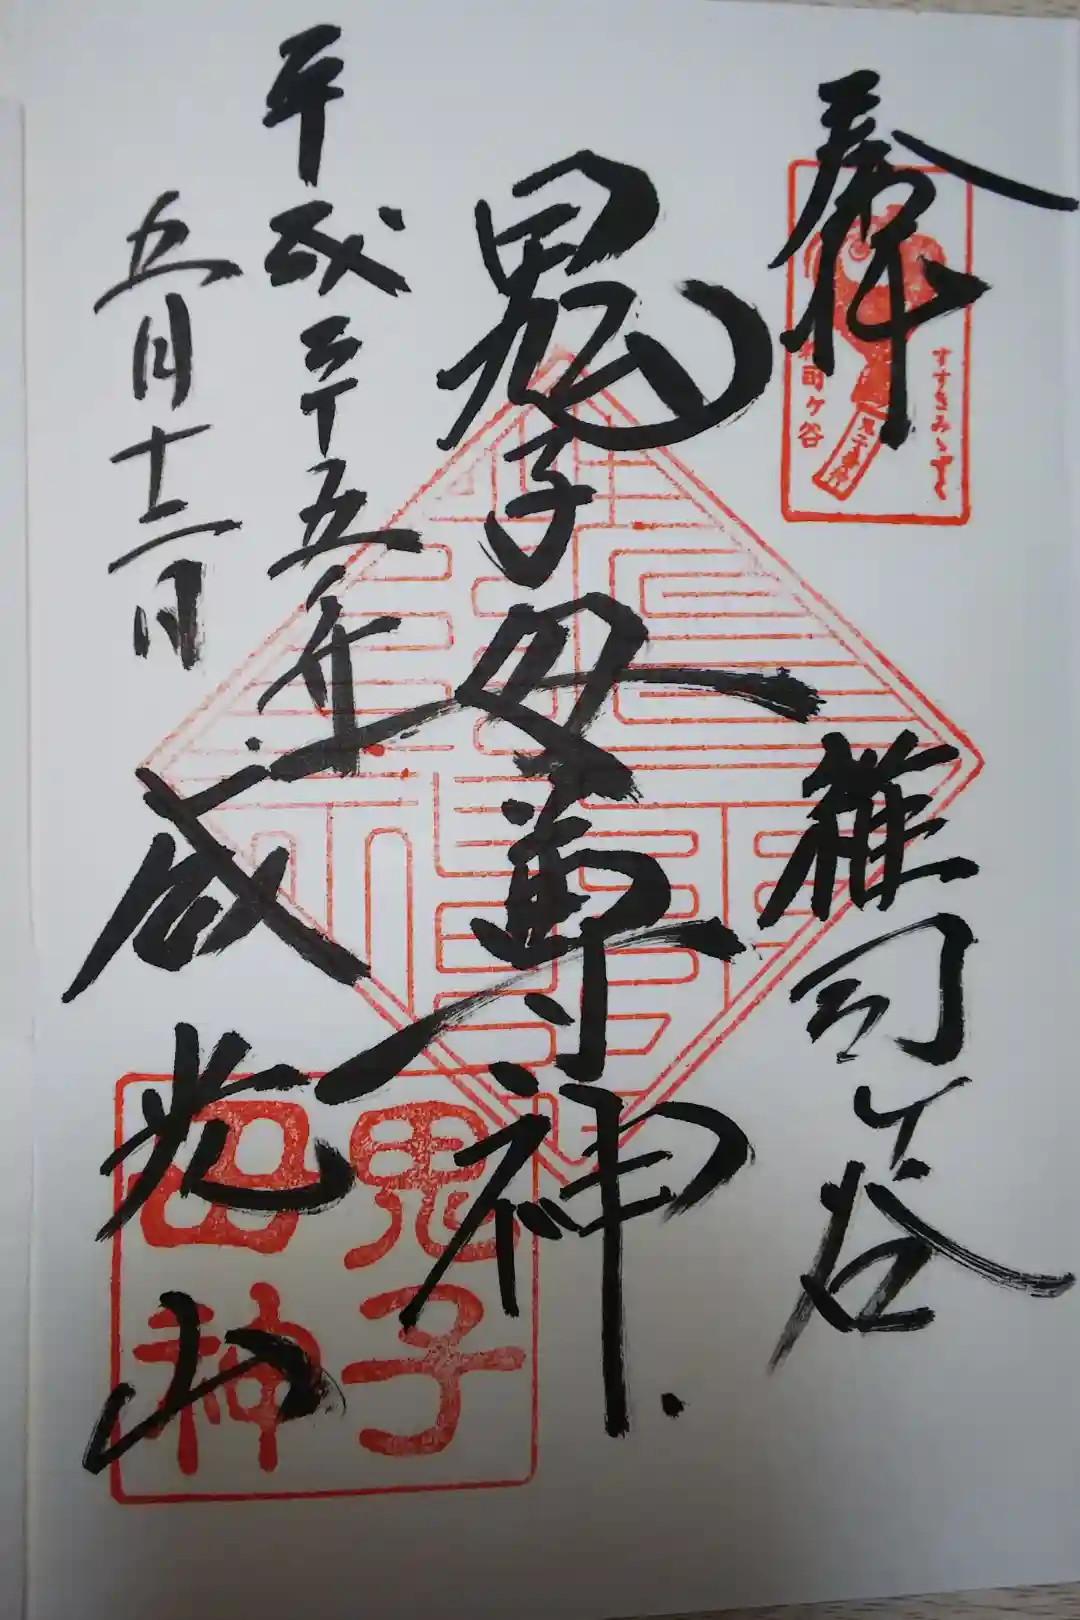 奉拝
雑司ヶ谷
鬼子母尊神
平成三十五年
五月十二日
威光山
すすきみゝずく
司ヶ谷
鬼子
神